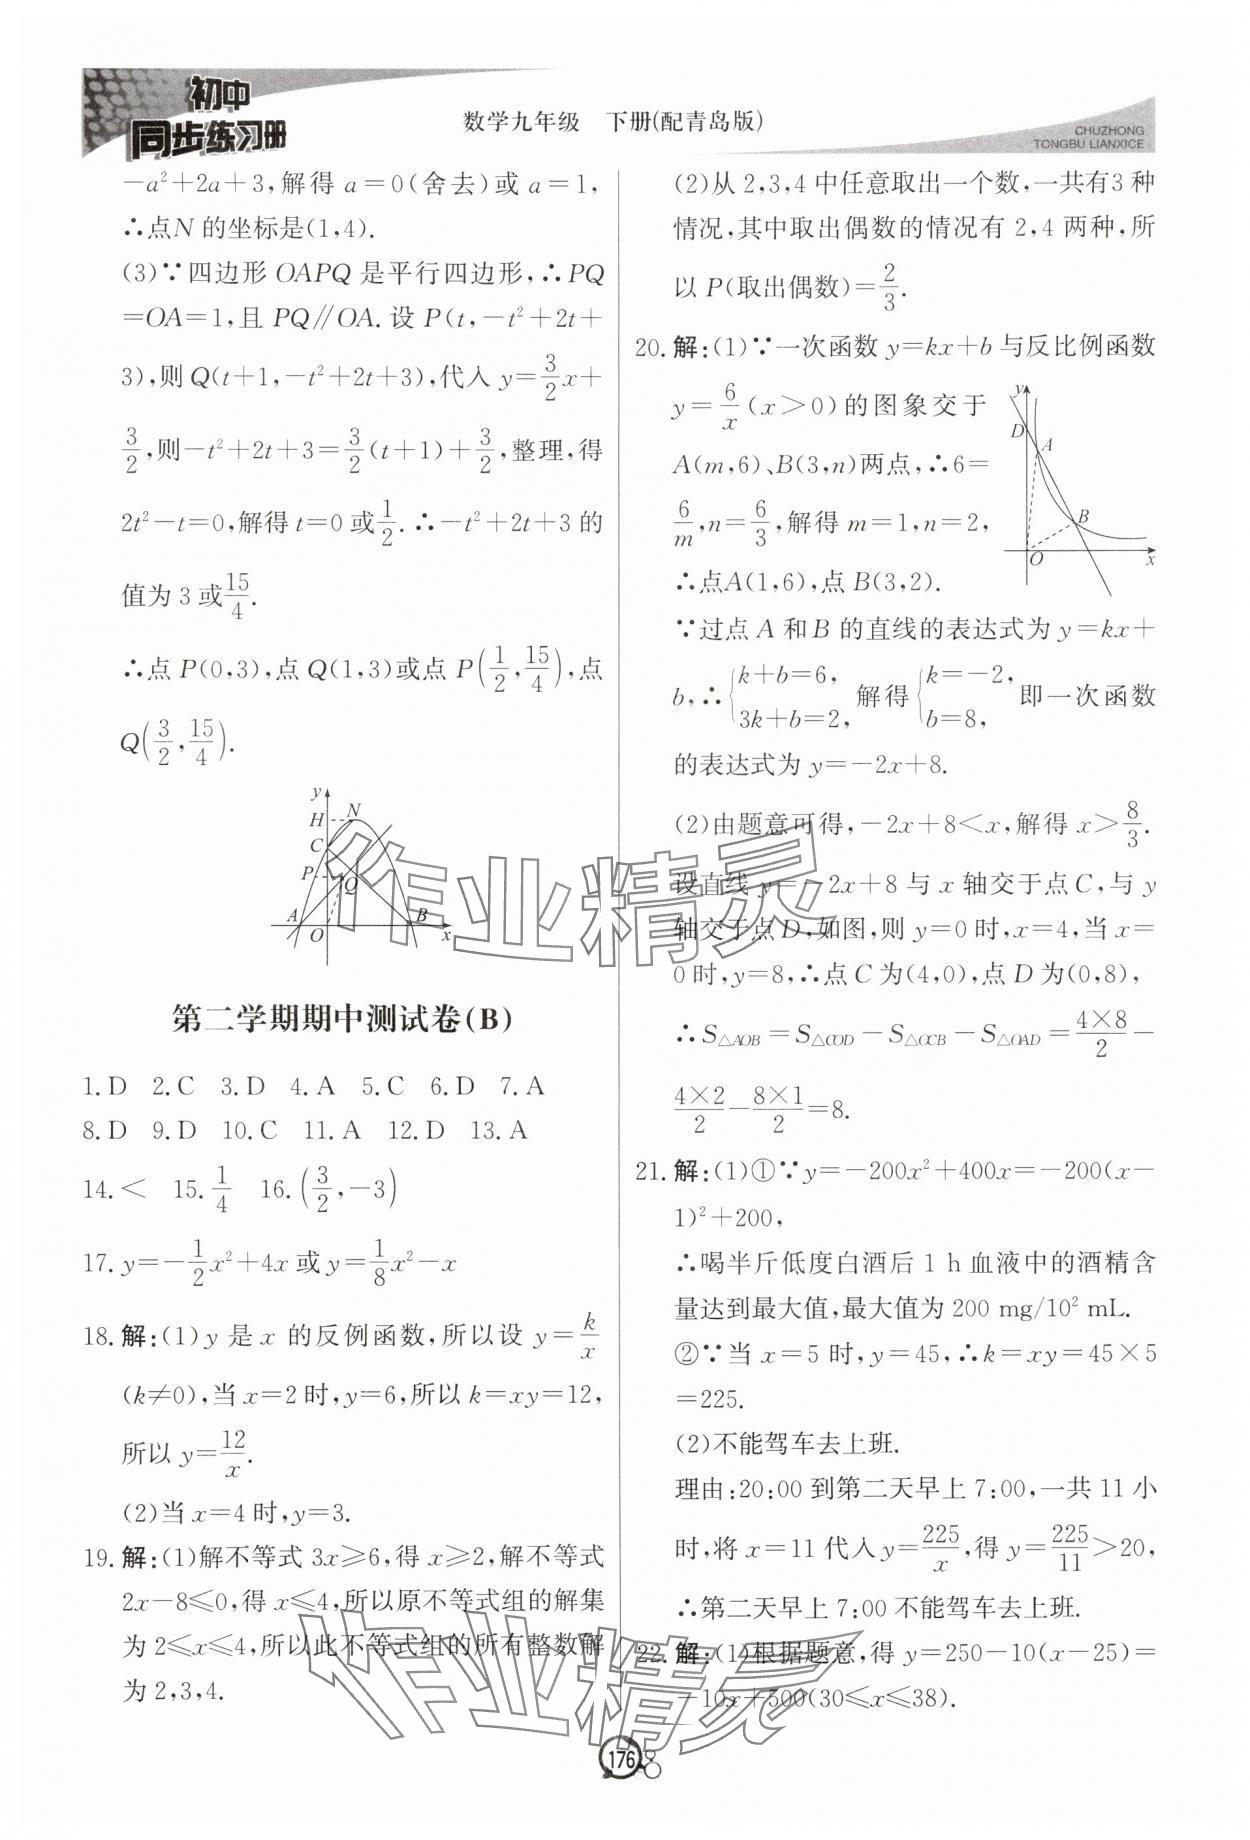 初中
同步练习册
数学九年级 下册(配青岛版)
CHUZHONG
TONGBU LIANXICE
−a²+2a+3,解得 a=0(舍去)或 a=1,
∴点N 的坐标是(1,4).
(3)∵四边形 OAPQ 是平行四边形,∴PQ
=OA=1,且 PQ∥OA. 设 P(t,−t²+2t+
3),则 Q(t+1,−t²+2t+3),代入 y=3/2x+
3/2,则−t²+2t+3=3/2(t+1)+3/2,整理,得
2t²−t=0,解得 t=0 或1/2. ∴−t²+2t+3 的
值为 3 或15/4.
∴点 P(0,3),点 Q(1,3)或点 P(1/2,15/4),点
Q(3/2,15/4).
y
H N
C
P Q
A O B x
第二学期期中测试卷(B)
1. D 2. C 3. D 4. A 5. C 6. D 7. A
8. D 9. D 10. C 11. A 12. D 13. A
14. < 15. 1/4 16. (3/2,−3)
17. y=−1/2x²+4x 或 y=1/8x²−x
18. 解:(1)y 是 x 的反例函数,所以设 y=k/x
(k≠0),当 x=2 时,y=6,所以 k=xy=12,
所以 y=12/x.
(2)当 x=4 时,y=3.
19. 解:(1)解不等式 3x≥6,得 x≥2,解不等式
2x−8≤0,得 x≤4,所以原不等式组的解集
为 2≤x≤4,所以此不等式组的所有整数解
为 2,3,4.
(2)从 2,3,4 中任意取出一个数,一共有3 种
情况,其中取出偶数的情况有 2,4 两种,所
以 P(取出偶数)=2/3.
20. 解:(1)∵一次函数 y=kx+b 与反比例函数
y=6/x(x>0)的图象交于
A(m,6)、B(3,n)两点,∴6=
6/m,n=6/3,解得 m=1,n=2,
∴点A(1,6),点 B(3,2).
y
D
A
B
O x
∵过点 A 和B 的直线的表达式为 y=kx+
b,∴{k+b=6, 3k+b=2, 解得{k=−2, b=8, 即一次函数
的表达式为 y=−2x+8.
(2)由题意可得,−2x+8<x,解得 x>8/3.
设直线 y=−2x+8 与 x 轴交于点 C,与 y
轴交于点 D,如图,则 y=0 时,x=4,当 x=
0 时,y=8,∴点 C 为(4,0),点 D 为(0,8),
∴S△AOB=S△COD−S△OCB−S△OAD=4×8/2−
4×2/2−8×1/2=8.
21. 解:(1)①∵y=−200x²+400x=−200(x−
1)²+200,
∴喝半斤低度白酒后 1 h 血液中的酒精含
量达到最大值,最大值为 200 mg/10² mL.
②∵当 x=5 时,y=45,∴k=xy=45×5
=225.
(2)不能驾车去上班.
理由:20:00 到第二天早上 7:00,一共 11 小
时,将 x=11 代入 y=225/x,得 y=225/11>20,
∴第二天早上 7:00 不能驾车去上班.
22. 解:(1)根据题意,得 y=250−10(x−25)=
−10x+500(30≤x≤38).
作业精灵
作业精灵
176